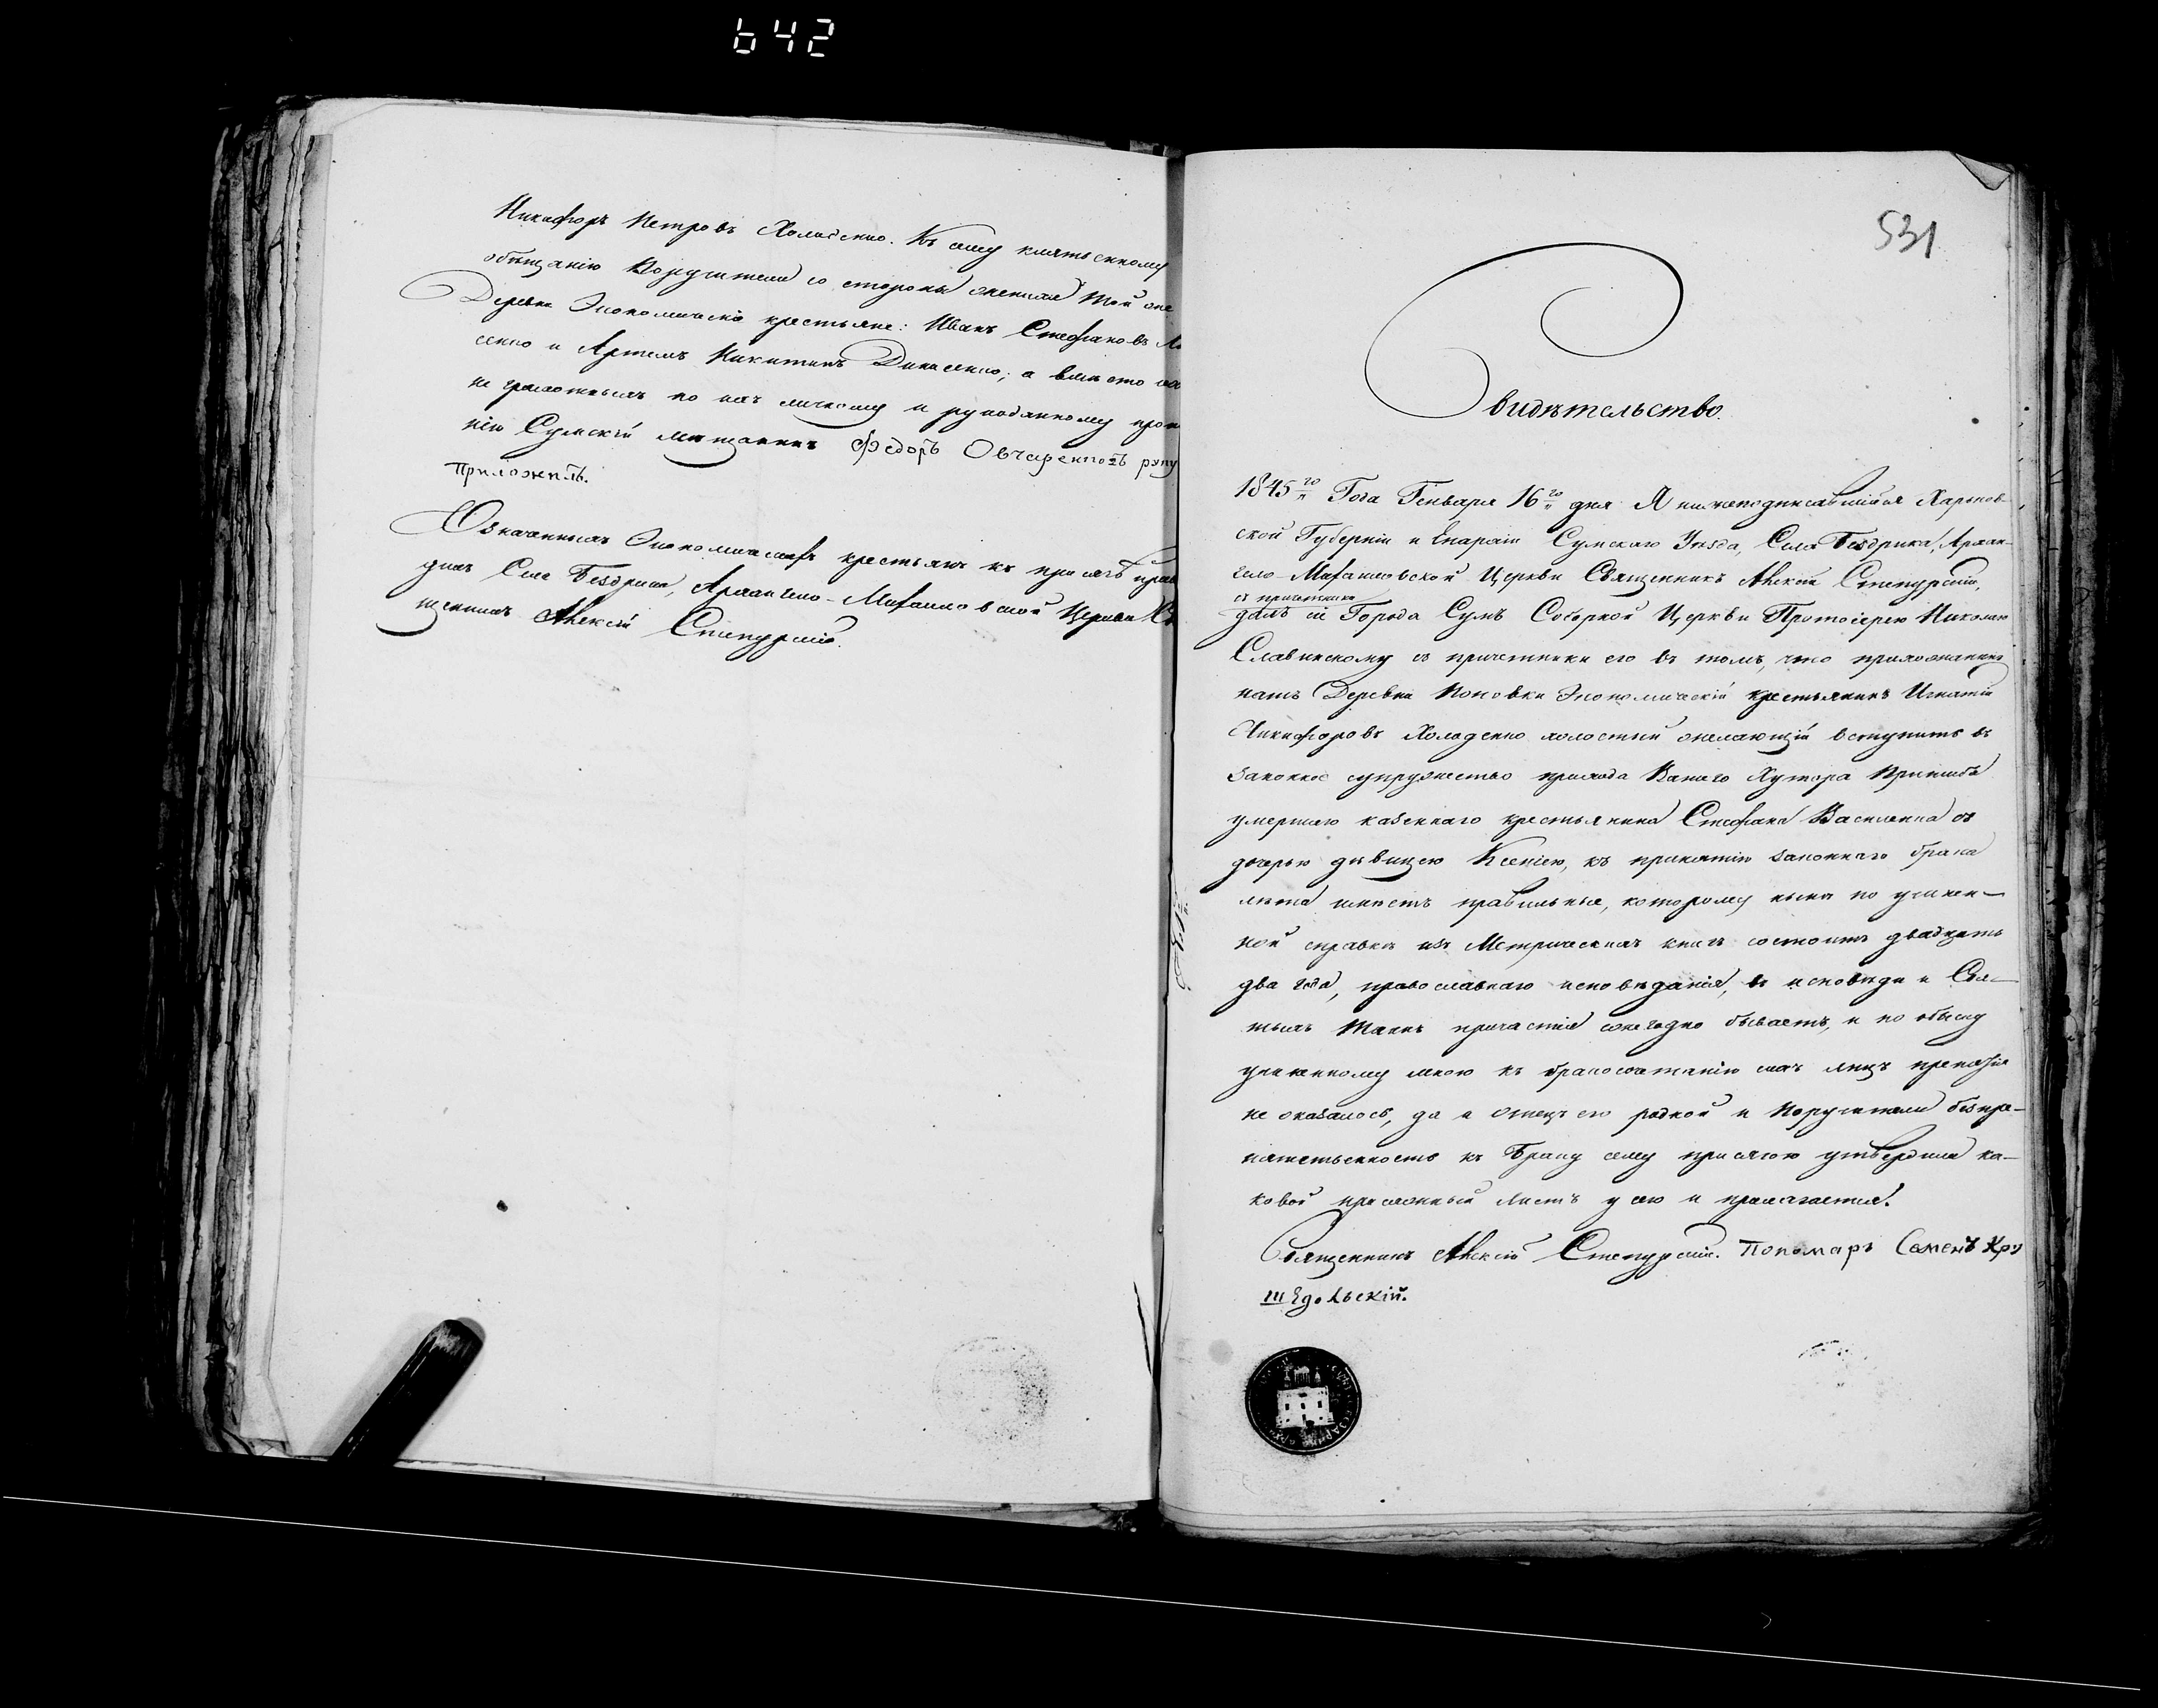 642
Никифоръ Петровъ Холоденко. Къ сему клятвенному
обѣщанію Поручители со стороны жениха той же
Деревни Экономическіе крестьяне: Иванъ Стефановъ
сенко и Артемъ Никитинъ Денисенко; а вмѣсто
не грамотныхъ по ихъ личному и рукоданному
нію Сумскій мѣщанинъ Федоръ Овчаренковъ руку
приложилъ.
Означенныхъ Экономическихъ крестьянъ къ присягѣ
дилъ Села Бездрика, Архангело-Михаиловской Церкви
щенникъ Алексій Степурскій.
531
Свидѣтельство.
1845го Года Генваря 16го дня Я нижеподписавшійся Харьков-
ской Губерніи и Епархіи Сумскаго Уѣзда, Села Бездрика, Архан-
гело-Михаиловской Церкви Священникъ Алексій Степурскій,
съ причетники
далъ сіе Города Сумъ Соборной Церкви Протоіерею Николаю
Славинскому съ причетники его въ томъ, что прихожанинъ
нашъ Деревни Поповки Экономическій крестьянинъ Игнатій
Никифоровъ Холоденко холостый желающій вступить въ
законное супружество прихода Вашего Хутора
умершаго казеннаго крестьянина Стефана Василенка съ
дочерью дѣвицею Ксеніею, къ принятію законнаго брака
лѣта имѣетъ правильные, которому нынѣ по учинен-
ной справкѣ изъ Метрическихъ книгъ состоитъ двадцать
два года, православнаго исповѣданія, въ исповѣди и Свя-
тыхъ Таинъ причастія ежегодно бываетъ, и по обыску
учиненному мною къ бракосочетанію сихъ лицъ препятія
не оказалось, да и отецъ его родной и Поручители безпре-
пятственность къ Браку сему присягою утвердили ка-
ковой присяжный листъ у сего и прилагается.
Священникъ Алексій Степурскій. Пономарь Семенъ Кру
шедольскій.